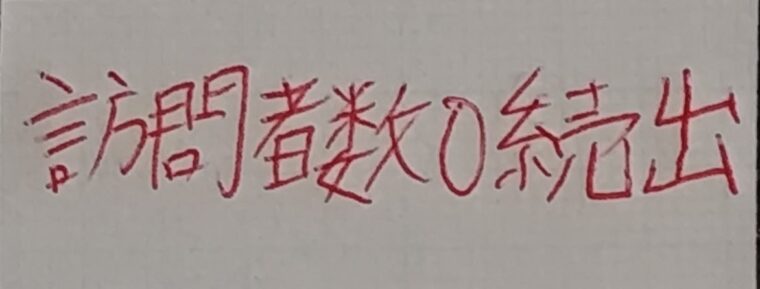 訪問者数0続出